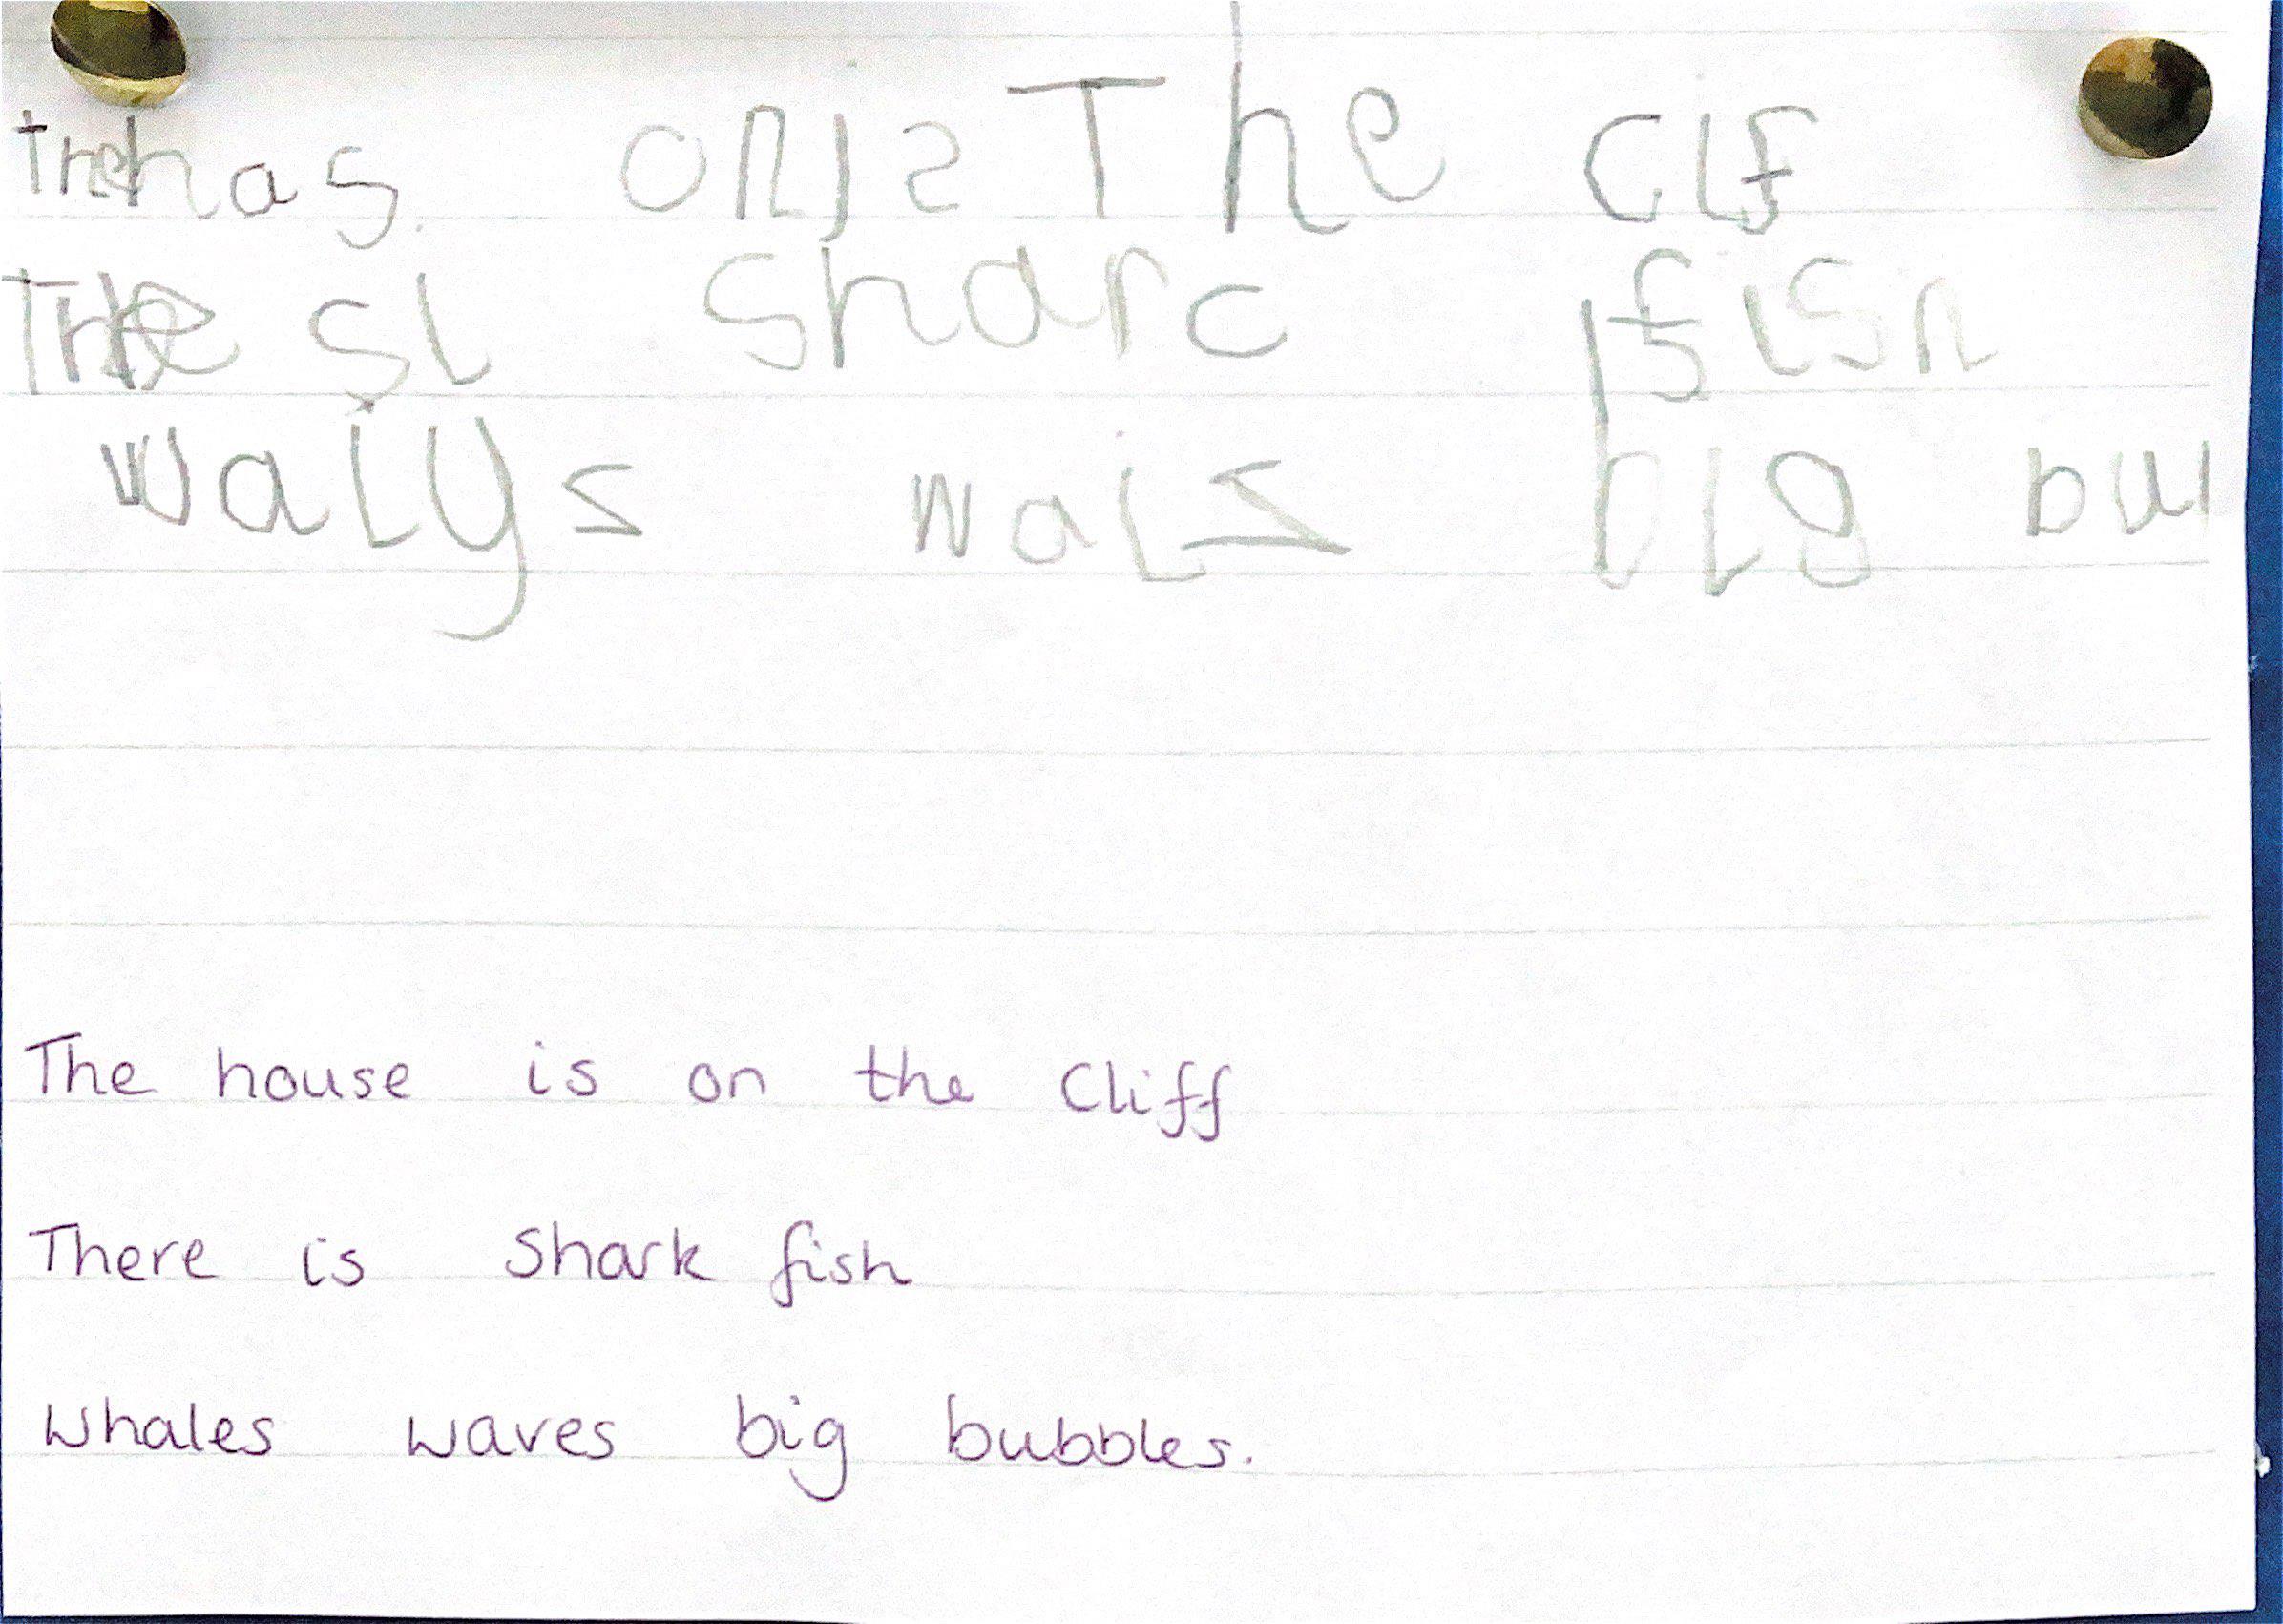 The has on is The clf
The si sharc fish
walys wais big bul
The house is on the cliff
There is shark fish
whales waves big bubbles.